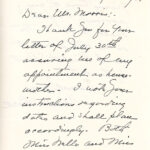 Dear Mrs. Morrow:
Thank you for your
letter of July 30th
assuring me of my
appointment as house-
mother. I note your
instructions regarding
dates and shall plan
accordingly. Both
Miss Wells and Miss